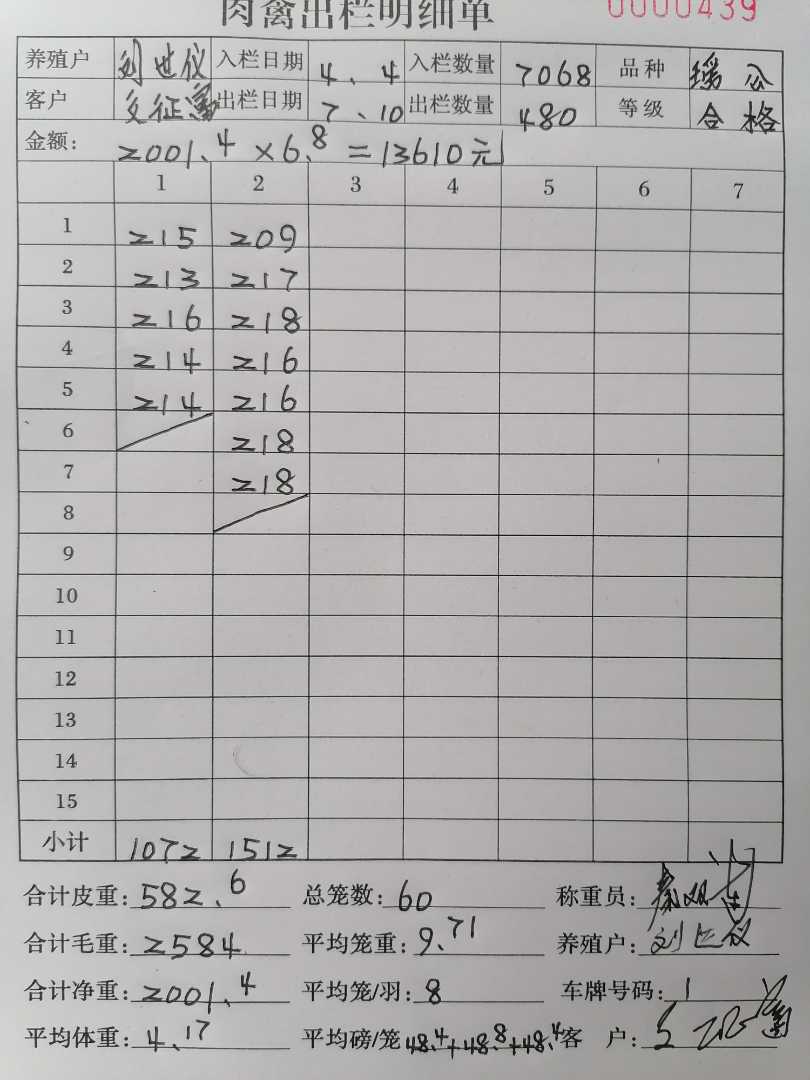 肉禽出栏明细单 0000439
养殖户 刘世仪 入栏日期 4、4 入栏数量 7068 品种 瑶公
客户 文征富 出栏日期 7、10 出栏数量 480 等级 合格
金额: 2001.4×6.8=13610元
1 2 3 4 5 6 7
1 215 209
2 213 217
3 216 218
4 214 216
5 214 216
6 218
7 218
8
9
10
11
12
13
14
15
小计 1072 1512
合计皮重: 582.6 总笼数: 60 称重员:
合计毛重: 2584 平均笼重: 9.71 养殖户: 刘世仪
合计净重: 2001.4 平均笼/羽: 8 车牌号码: 1
平均体重: 4.17 平均磅/笼 48.4+48.8+48.4 客户: